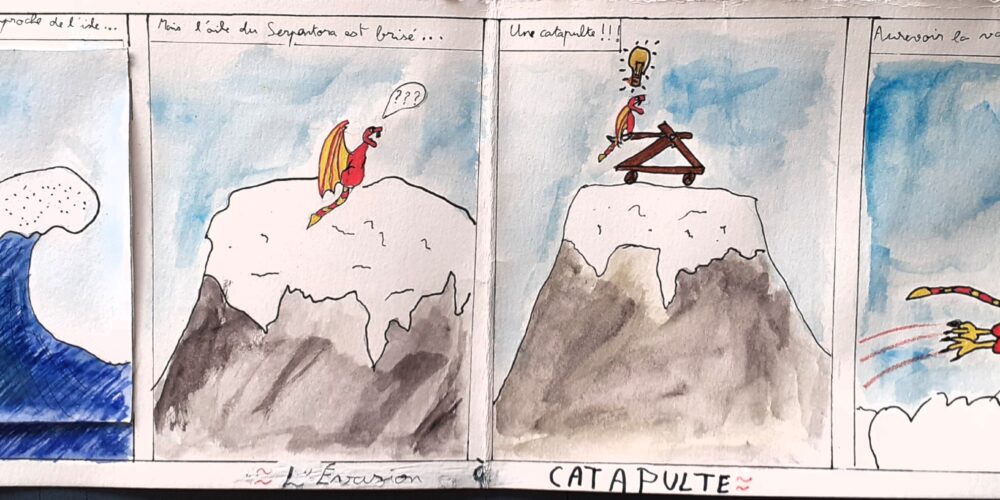 proche de l'île...
Mais l'aile du Serpantora est brisé...
???
Une catapulte !!!
Aurevoir la
L'Évasion à CATAPULTE